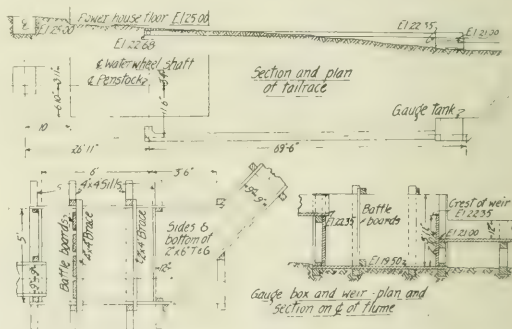 Power house floor El.25.00
El.25.00
El.22.68
El.22.35
El.21.00
℄ Waterwheel shaft
& Penstock
Section and plan
of tailrace
Gauge Tank
10
26'11"
69'-6"
6'
4"x4"Sills
3'6"
5'
Battle boards
2"x4"Brace
2"x4"Brace
Sides &
bottom of
2"x6"T&G
12"
9'-9"
El.22.35
Battle
boards
Crest of weir
El.22.35
El.21.00
12"
El.19.50
Gauge box and weir-plan and
section on ℄ of flume